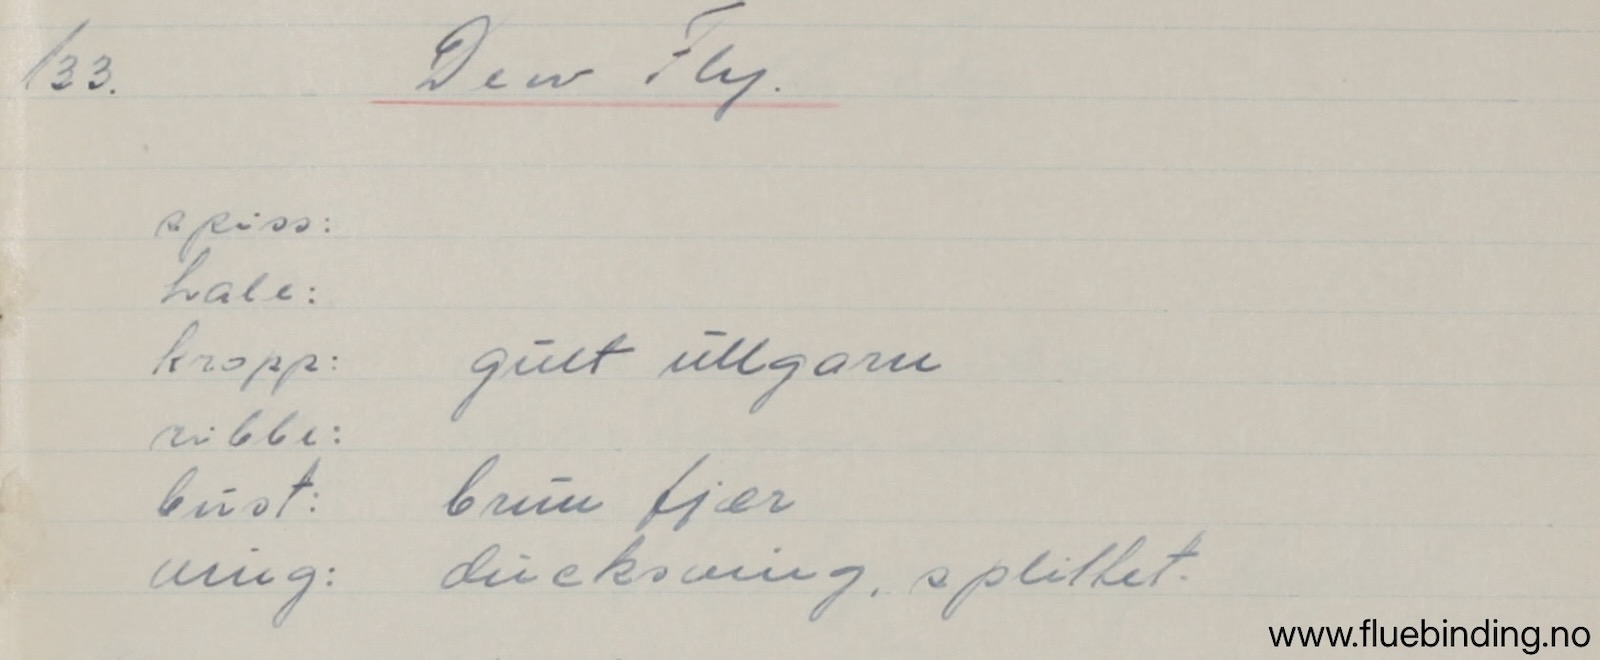 133. Dew Fly.
spiss:
hale:
kropp: gult ullgarn
ribbe:
bust: brun fjær
ving: duckswing, splittet.
www.fluebinding.no